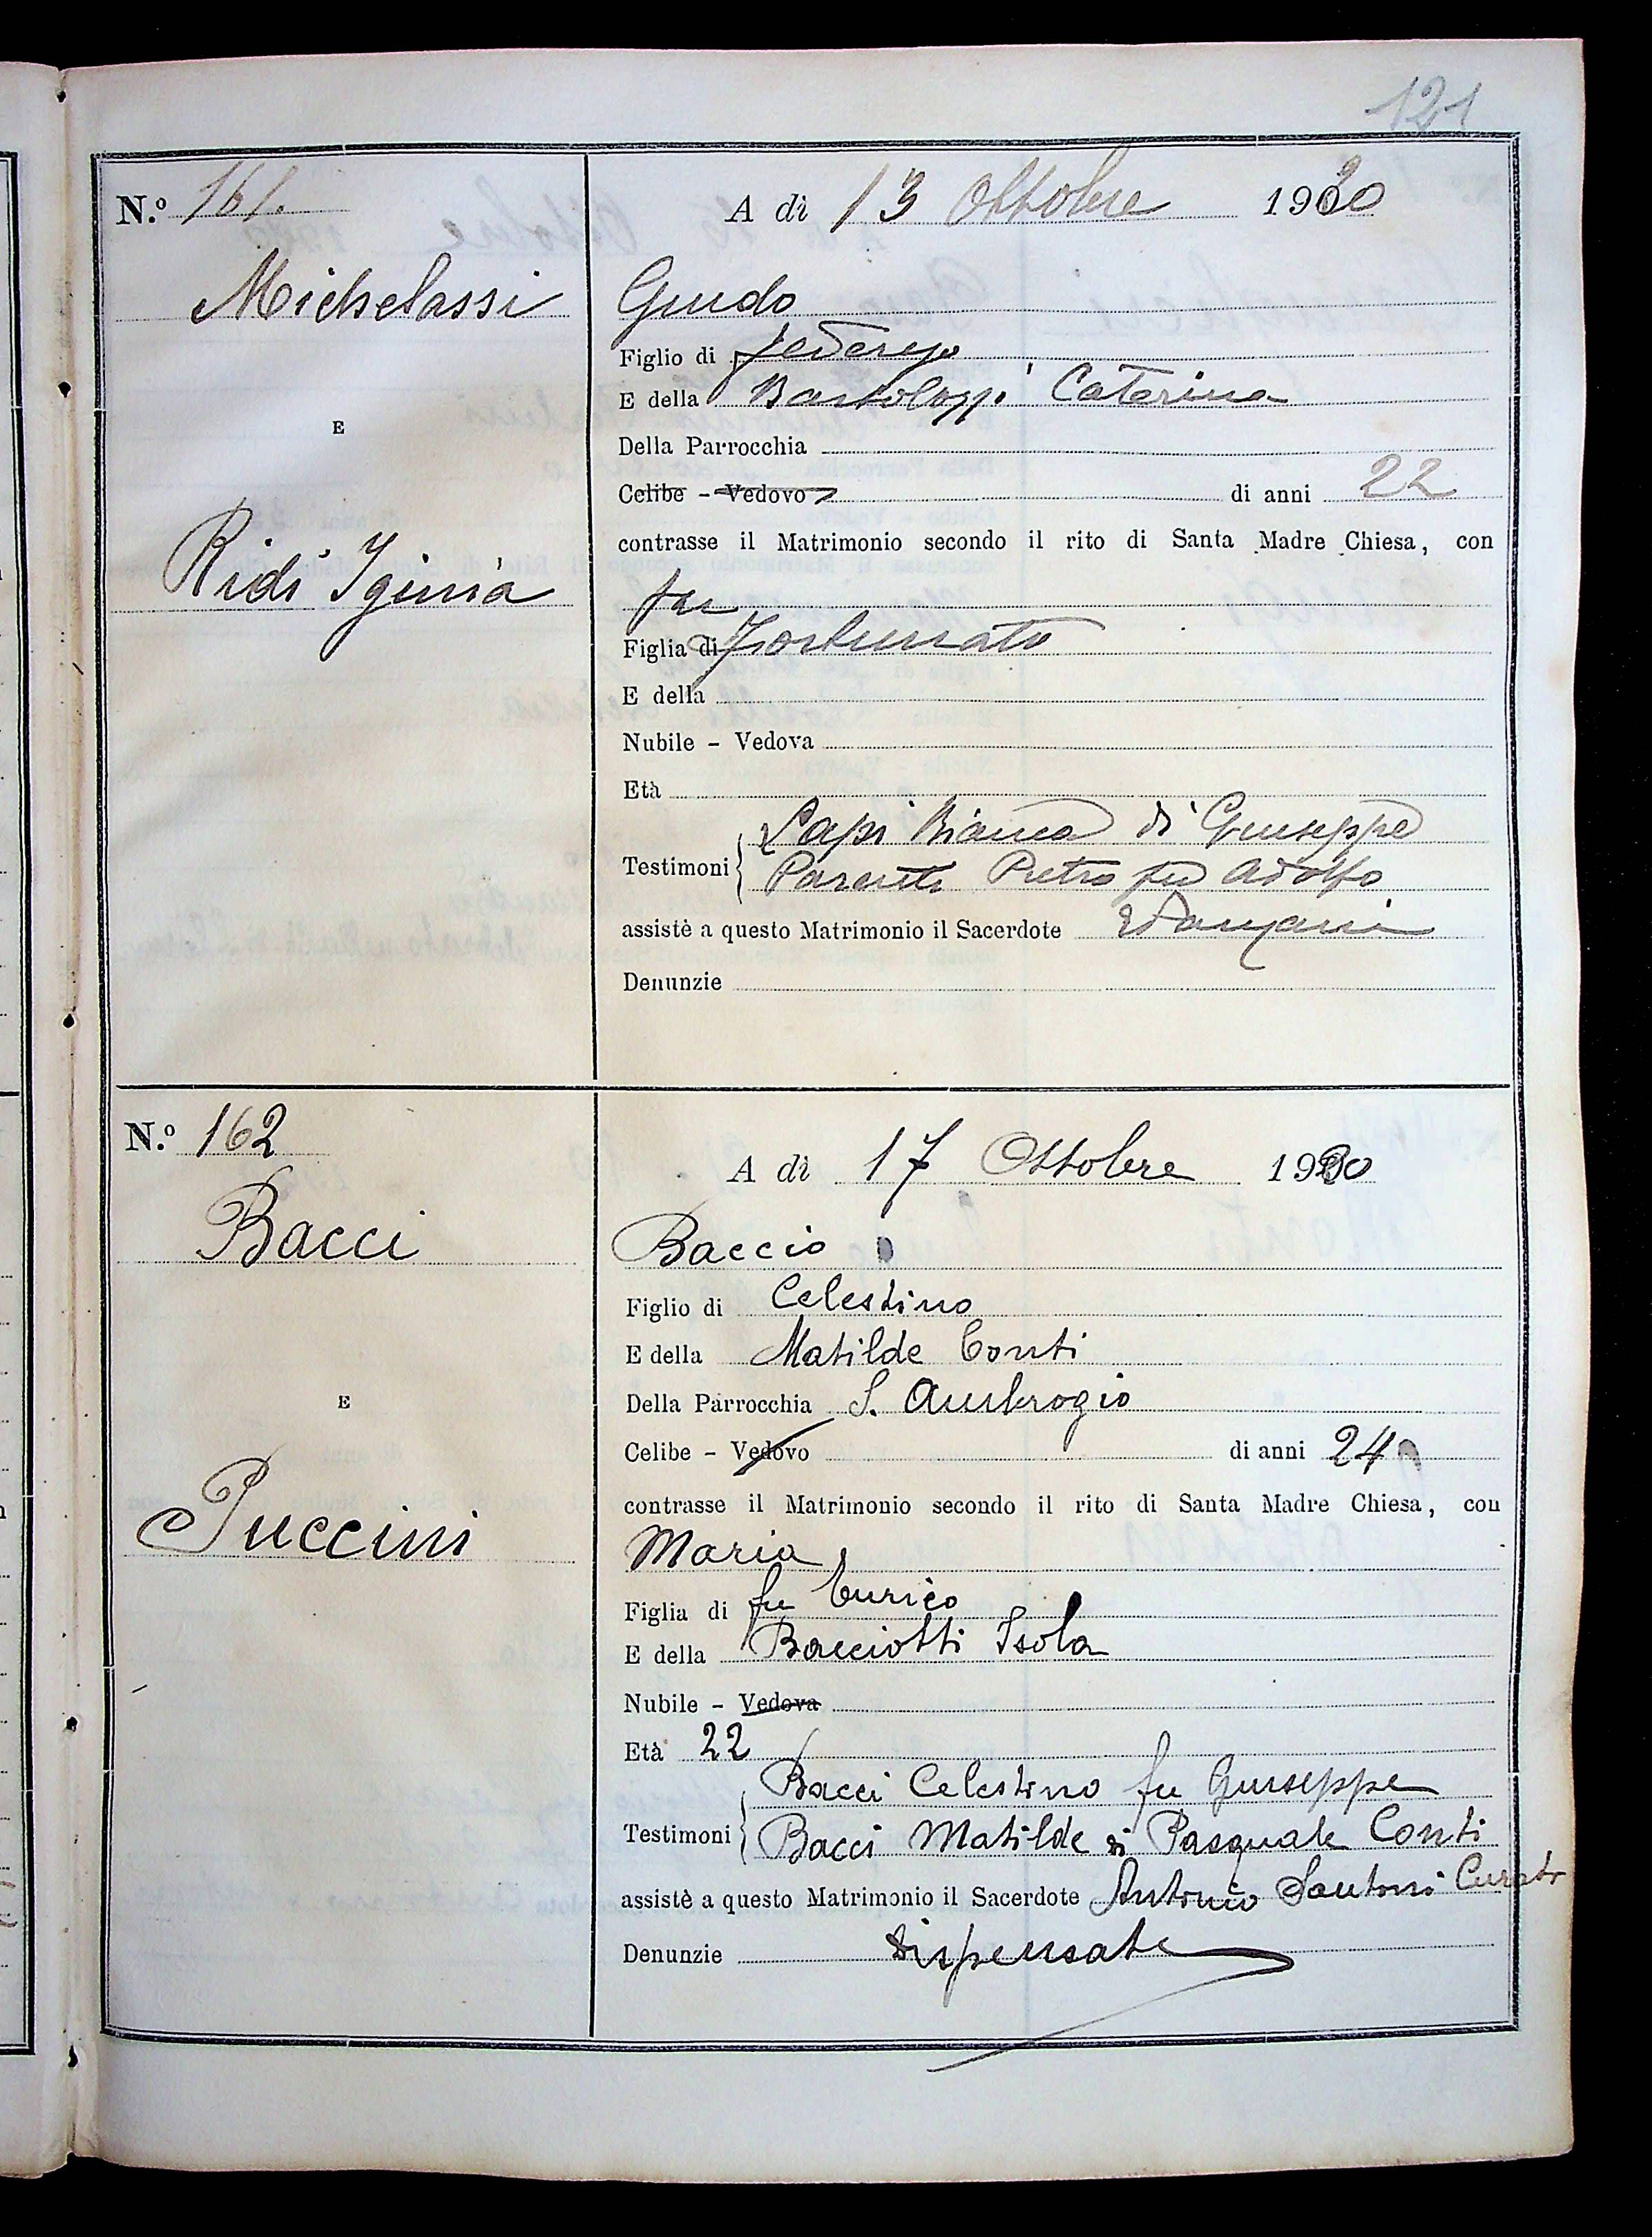 121
N.º 161.
A dì 13 Ottobre 1920
Michelassi
Guido
Figlio di Federigo
E della Bartolozzi Caterina
E
Della Parrocchia
Celibe - Vedovo di anni 22
contrasse il Matrimonio secondo il rito di Santa Madre Chiesa, con
Ridi Iginia
fu
Figlia di Fortunato
E della
Nubile - Vedova
Età
Lapi Bianca di Giuseppe
Testimoni
Parenti Pietro fu Adolfo
assistè a questo Matrimonio il Sacerdote
Denunzie
N.º 162
A dì 17 Ottobre 1920
Bacci
Baccio
Figlio di Celestino
E della Matilde Conti
E
Della Parrocchia S. Ambrogio
Celibe - Vedovo di anni 24
contrasse il Matrimonio secondo il rito di Santa Madre Chiesa, con
Puccini
Maria
Figlia di fu Enrico
E della Bacciotti Isola
Nubile - Vedova
Età 22
Bacci Celestino fu Giuseppe
Testimoni
Bacci Matilde di Pasquale Conti
assistè a questo Matrimonio il Sacerdote Antonio Santoni Curato
Denunzie dispensate